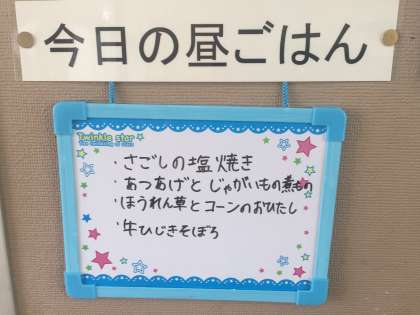 今日の昼ごはん
Twinkle star
・さごしの塩焼き
・あつあげとじゃがいもの煮もの
・ほうれん草とコーンのおひたし
・牛ひじきそぼろ